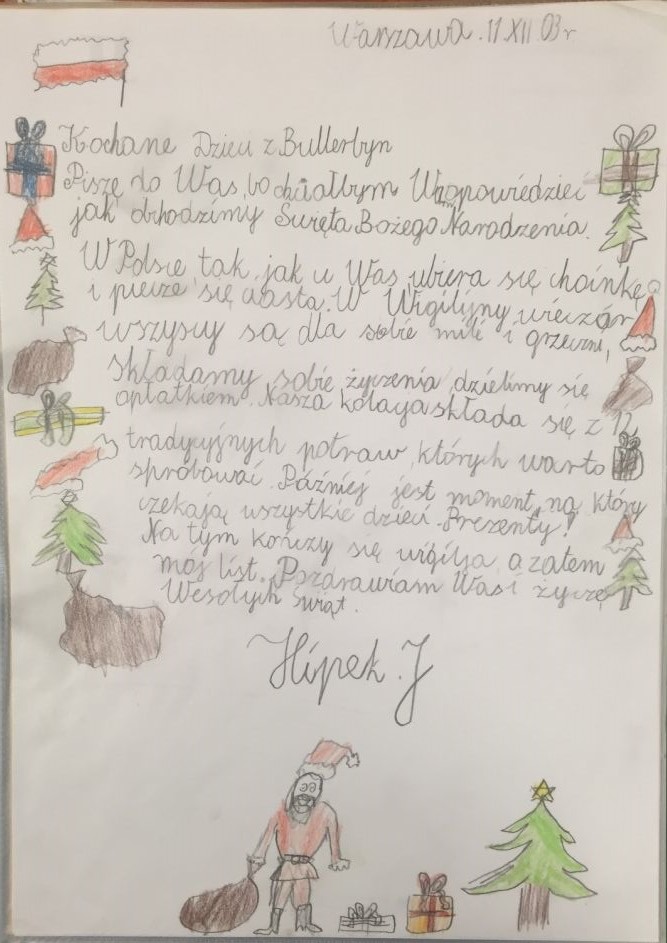 Warszawa. 11 XII 03 r
Kochane Dzieci z Bullerbyn
Piszę do Was, bo chciałbym Wam opowiedzieć
jak obchodzimy Święta Bożego Narodzenia.
W Polsce tak, jak u Was ubiera się choinkę
i piecze się ciasta. W Wigilijny wieczór
wszyscy są dla siebie mili i grzeczni,
składamy sobie życzenia, dzielimy się
opłatkiem. Nasza kolacja składa się z 12
tradycyjnych potraw, których warto
spróbować. Później jest moment, na który
czekają wszystkie dzieci. Prezenty!
Na tym kończy się wigilja, a zatem
mój list. Pozdrawiam Was i życzę
Wesołych Świąt.
Hipek. J